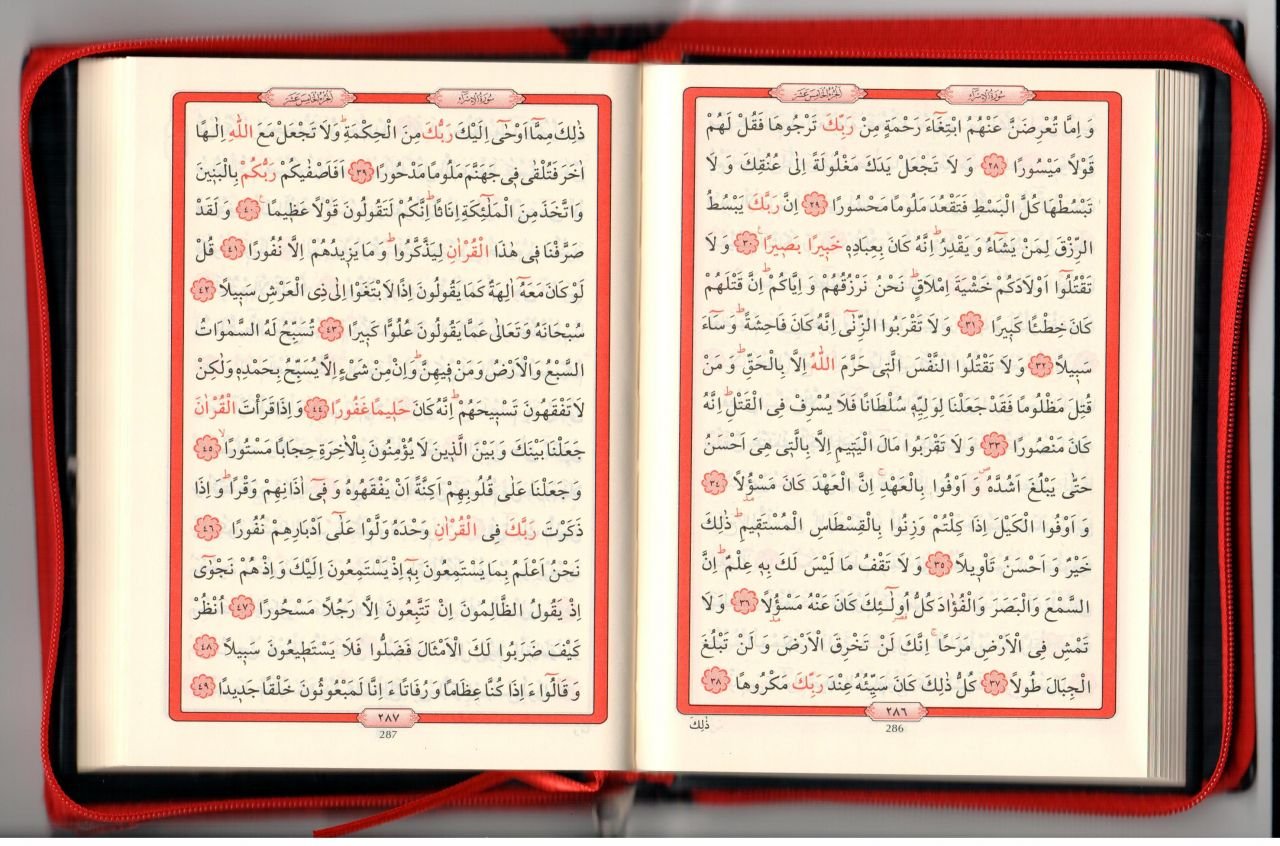 سُورَةُ الْاِسْرَاءِ
اَلْجُزْءُ الْخَامِسَ عَشَرَ
وَ اِمَّا تُعْرِضَنَّ عَنْهُمُ ابْتِغَٓاءَ رَحْمَةٍ مِنْ رَبِّكَ تَرْجُوهَا فَقُلْ لَهُمْ
قَوْلًا مَيْسُورًا ﴿٢٨﴾ وَ لَا تَجْعَلْ يَدَكَ مَغْلُولَةً اِلٰى عُنُقِكَ وَ لَا
تَبْسُطْهَا كُلَّ الْبَسْطِ فَتَقْعُدَ مَلُومًا مَحْسُورًا ﴿٢٩﴾ اِنَّ رَبَّكَ يَبْسُطُ
الرِّزْقَ لِمَنْ يَشَٓاءُ وَ يَقْدِرُۜ اِنَّهُ كَانَ بِعِبَادِهٖ خَبٖيرًا بَصٖيرًا ﴿٣٠﴾ وَ لَا
تَقْتُلُٓوا اَوْلَادَكُمْ خَشْيَةَ اِمْلَاقٍۜ نَحْنُ نَرْزُقُهُمْ وَ اِيَّاكُمْۜ اِنَّ قَتْلَهُمْ
كَانَ خِطْـًٔا كَبٖيرًا ﴿٣١﴾ وَ لَا تَقْرَبُوا الزِّنٰٓى اِنَّهُ كَانَ فَاحِشَةًۜ وَ سَٓاءَ
سَبٖيلًا ﴿٣٢﴾ وَ لَا تَقْتُلُوا النَّفْسَ الَّتٖى حَرَّمَ اللّٰهُ اِلَّا بِالْحَقِّۜ وَ مَنْ
قُتِلَ مَظْلُومًا فَقَدْ جَعَلْنَا لِوَلِيِّهٖ سُلْطَانًا فَلَا يُسْرِفْ فِى الْقَتْلِۜ اِنَّهُ
كَانَ مَنْصُورًا ﴿٣٣﴾ وَ لَا تَقْرَبُوا مَالَ الْيَتٖيمِ اِلَّا بِالَّتٖى هِىَ اَحْسَنُ
حَتّٰى يَبْلُغَ اَشُدَّهُۖ وَ اَوْفُوا بِالْعَهْدِۚ اِنَّ الْعَهْدَ كَانَ مَسْؤُلًا ﴿٣٤﴾
وَ اَوْفُوا الْكَيْلَ اِذَا كِلْتُمْ وَ زِنُوا بِالْقِسْطَاسِ الْمُسْتَقٖيمِۜ ذٰلِكَ
خَيْرٌ وَ اَحْسَنُ تَاْوٖيلًا ﴿٣٥﴾ وَ لَا تَقْفُ مَا لَيْسَ لَكَ بِهٖ عِلْمٌۜ اِنَّ
السَّمْعَ وَالْبَصَرَ وَالْفُؤَادَ كُلُّ اُولٰٓئِكَ كَانَ عَنْهُ مَسْؤُلًا ﴿٣٦﴾ وَ لَا
تَمْشِ فِى الْاَرْضِ مَرَحًاۚ اِنَّكَ لَنْ تَخْرِقَ الْاَرْضَ وَ لَنْ تَبْلُغَ
الْجِبَالَ طُولًا ﴿٣٧﴾ كُلُّ ذٰلِكَ كَانَ سَيِّئُهُ عِنْدَ رَبِّكَ مَكْرُوهًا ﴿٣٨﴾
٢٨٦
286
ذٰلِكَ
سُورَةُ الْاِسْرَاءِ
اَلْجُزْءُ الْخَامِسَ عَشَرَ
ذٰلِكَ مِمَّٓا اَوْحٰٓى اِلَيْكَ رَبُّكَ مِنَ الْحِكْمَةِۜ وَلَا تَجْعَلْ مَعَ اللّٰهِ اِلٰهًا
اٰخَرَ فَتُلْقٰى فٖى جَهَنَّمَ مَلُومًا مَدْحُورًا ﴿٣٩﴾ اَفَاَصْفٰيكُمْ رَبُّكُمْ بِالْبَنٖينَ
وَاتَّخَذَ مِنَ الْمَلٰٓئِكَةِ اِنَاثًاۜ اِنَّكُمْ لَتَقُولُونَ قَوْلًا عَظٖيمًا ﴿٤٠﴾ وَ لَقَدْ
صَرَّفْنَا فٖى هٰذَا الْقُرْاٰنِ لِيَذَّكَّرُواۜ وَ مَا يَزٖيدُهُمْ اِلَّا نُفُورًا ﴿٤١﴾ قُلْ
لَوْ كَانَ مَعَهُٓ اٰلِهَةٌ كَمَا يَقُولُونَ اِذًا لَابْتَغَوْا اِلٰى ذِى الْعَرْشِ سَبٖيلًا ﴿٤٢﴾
سُبْحَانَهُ وَ تَعَالٰى عَمَّا يَقُولُونَ عُلُوًّا كَبٖيرًا ﴿٤٣﴾ تُسَبِّحُ لَهُ السَّمٰوَاتُ
السَّبْعُ وَالْاَرْضُ وَ مَنْ فٖيهِنَّۜ وَ اِنْ مِنْ شَىْءٍ اِلَّا يُسَبِّحُ بِحَمْدِهٖ وَلٰكِنْ
لَا تَفْقَهُونَ تَسْبٖيحَهُمْۜ اِنَّهُ كَانَ حَلٖيمًا غَفُورًا ﴿٤٤﴾ وَ اِذَا قَرَأْتَ الْقُرْاٰنَ
جَعَلْنَا بَيْنَكَ وَ بَيْنَ الَّذٖينَ لَا يُؤْمِنُونَ بِالْاٰخِرَةِ حِجَابًا مَسْتُورًاۙ ﴿٤٥﴾
وَ جَعَلْنَا عَلٰى قُلُوبِهِمْ اَكِنَّةً اَنْ يَفْقَهُوهُ وَ فٖٓى اٰذَانِهِمْ وَقْرًاۜ وَ اِذَا
ذَكَرْتَ رَبَّكَ فِى الْقُرْاٰنِ وَحْدَهُ وَلَّوْا عَلٰٓى اَدْبَارِهِمْ نُفُورًا ﴿٤٦﴾
نَحْنُ اَعْلَمُ بِمَا يَسْتَمِعُونَ بِهٖٓ اِذْ يَسْتَمِعُونَ اِلَيْكَ وَ اِذْ هُمْ نَجْوٰٓى
اِذْ يَقُولُ الظَّالِمُونَ اِنْ تَتَّبِعُونَ اِلَّا رَجُلًا مَسْحُورًا ﴿٤٧﴾ اُنْظُرْ
كَيْفَ ضَرَبُوا لَكَ الْاَمْثَالَ فَضَلُّوا فَلَا يَسْتَطٖيعُونَ سَبٖيلًا ﴿٤٨﴾
وَ قَالُٓوا ءَ اِذَا كُنَّا عِظَامًا وَ رُفَاتًا ءَ اِنَّا لَمَبْعُوثُونَ خَلْقًا جَدٖيدًا ﴿٤٩﴾
٢٨٧
287